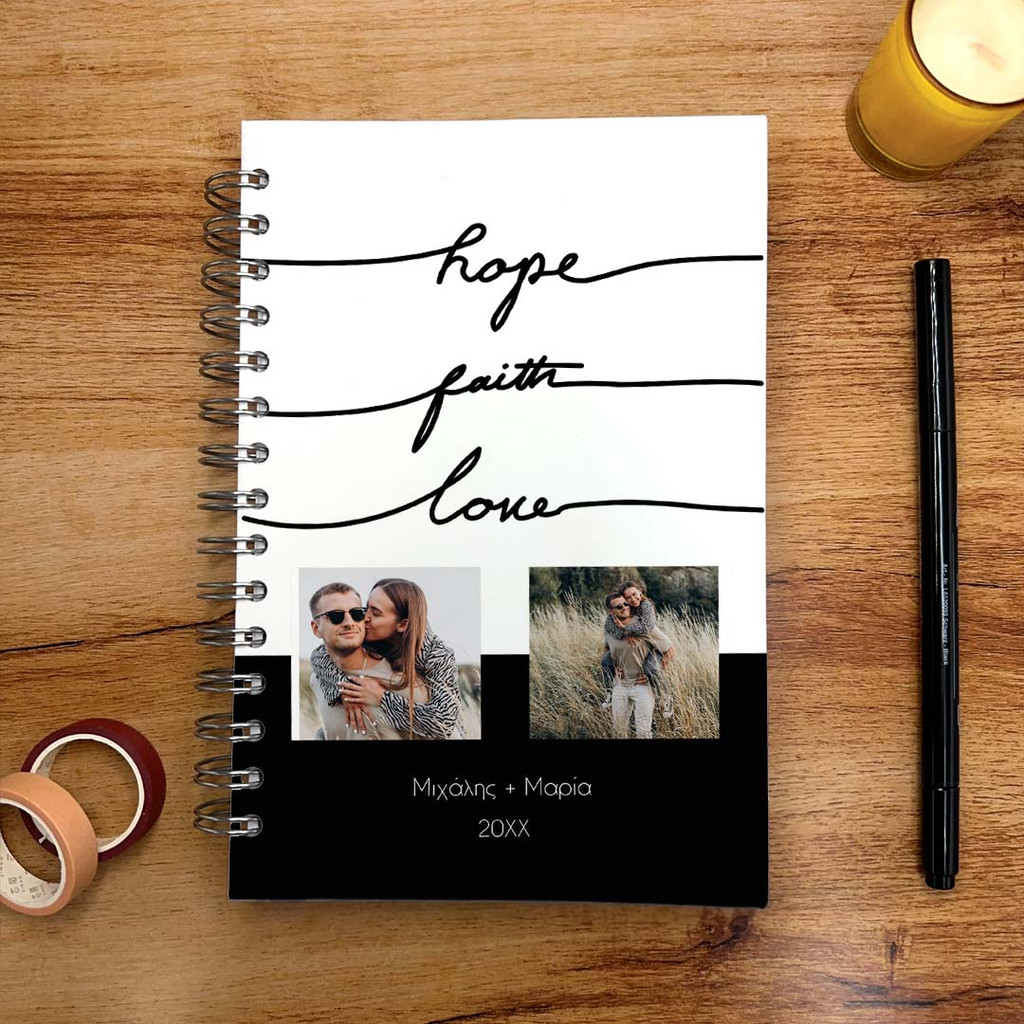 hope
faith
love
Μιχάλης + Μαρία
20XX